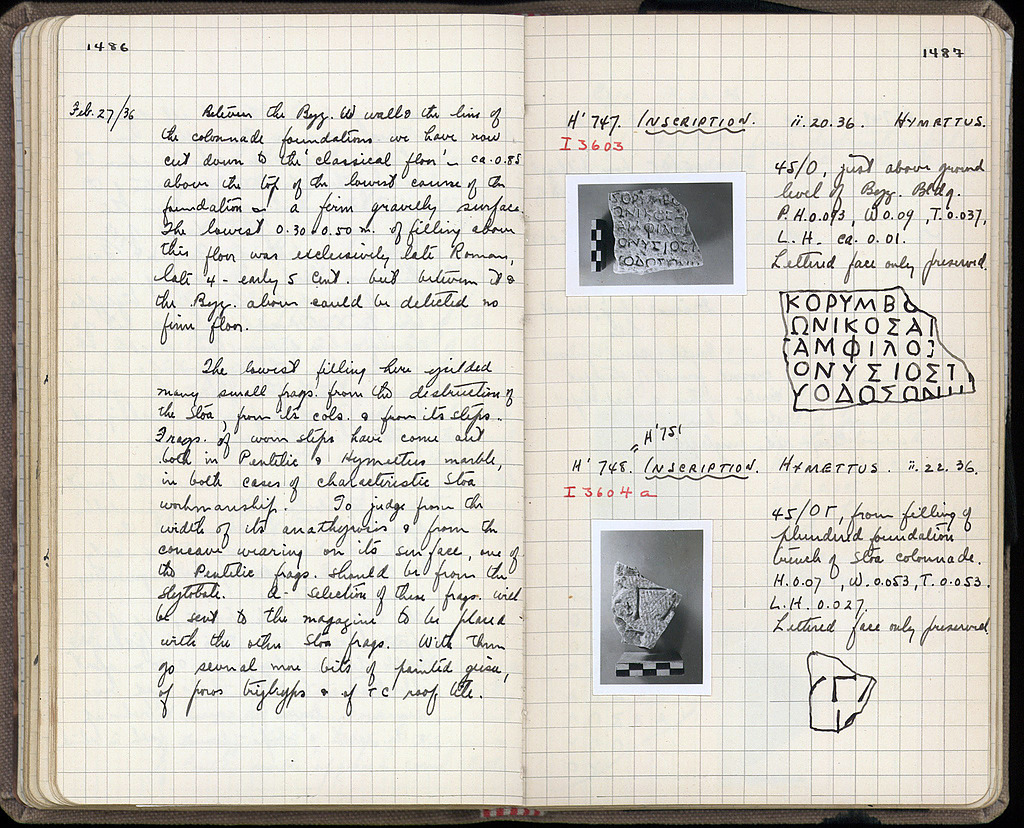 1486
Feb. 27/36
Between the Byz. W wall & the line of
the colonnade foundations we have now
cut down to the 'classical floor' – ca. 0.85
above the top of the lowest course of the
foundation – a firm gravelly surface.
The lowest 0.30 – 0.50 m. of filling above
this floor was exclusively late Roman,
late 4 – early 5 cent. but between it &
the Byz. above could be detected no
firm floor.
The lowest filling here yielded
many small frags. from the destruction of
the Stoa, from its cols. & from its steps.
Frags. of worn steps have come out
both in Pentelic & Hymettus marble,
in both cases of characteristic Stoa
workmanship. To judge from the
width of its anathyrosis & from the
concave wearing on its surface, one of
the Pentelic frags. should be from the
stylobate. A selection of these frags. will
be sent to the magazine to be placed
with the other Stoa frags. With them
go several more bits of painted geisa,
of poros triglyphs & of TC roof tile.
1487
H' 747. INSCRIPTION. ii.20.36. HYMETTUS.
I 3603
45/Ο, just above ground
level of Byz. Bldg.
P.H.0.093, W.0.09, T.0.037,
L.H. ca. 0.01.
Lettered face only preserved.
ΚΟΡΥΜΒΟ
ΩΝΙΚΟΣΑΓ
ΑΜΦΙΛΟ
ΟΝΥΣΙΟΣΤ
ΥΟΔΟΣΩΝ
" H'751
H' 748. INSCRIPTION. HYMETTUS. ii.22.36.
I 3604 a
45/ΟΓ, from filling of
plundered foundation
trench of Stoa colonnade.
H.0.07, W.0.053, T.0.053.
L.H. 0.027.
Lettered face only preserved.